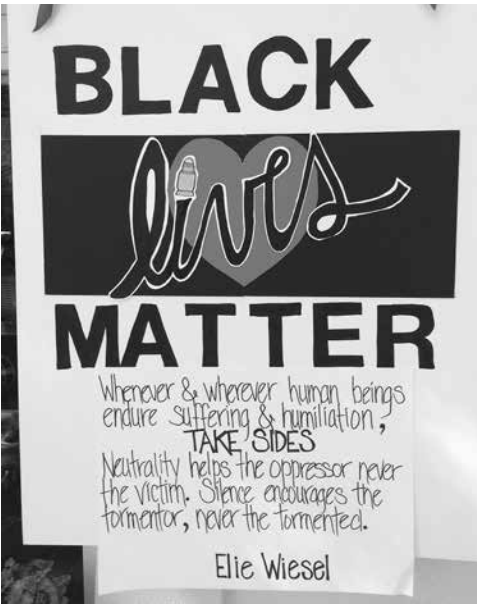 BLACK
lives
MATTER
Whenever & wherever human beings
endure suffering & humiliation,
TAKE SIDES
Neutrality helps the oppressor never
the victim. Silence encourages the
tormentor, never the tormented.
Elie Wiesel